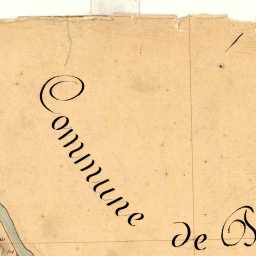 Commune de